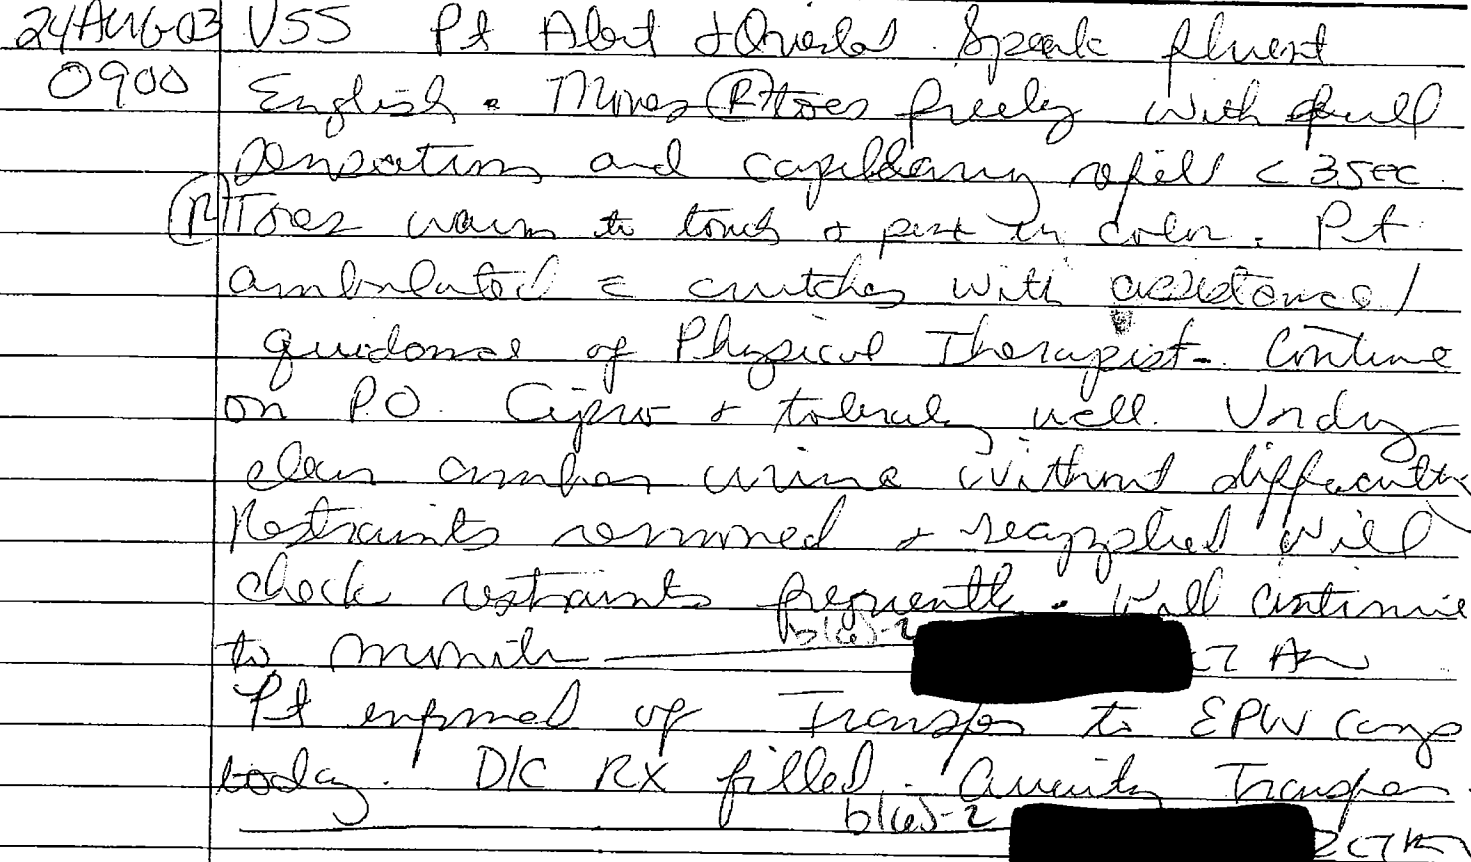 24AUG03 VSS Pt Alert + Oriented. Speak fluent
0900 English. Moves (R) toes freely with full
sensation and capillary refill < 3sec.
(R) Toes warm to touch + pink in color. Pt
ambulated c̄ crutches with assistance/
guidance of Physical Therapist. Continue
on P.O. Cipro + tolerating well. Voiding
clear amber urine without difficulty
Restraints removed + reapplied Will
check restraints frequently. Will continue
to monitor b(6)-2 AN
Pt informed of Transfer to EPW camp
today. D/C RX filled. Awaiting Transfer.
b(6)-2